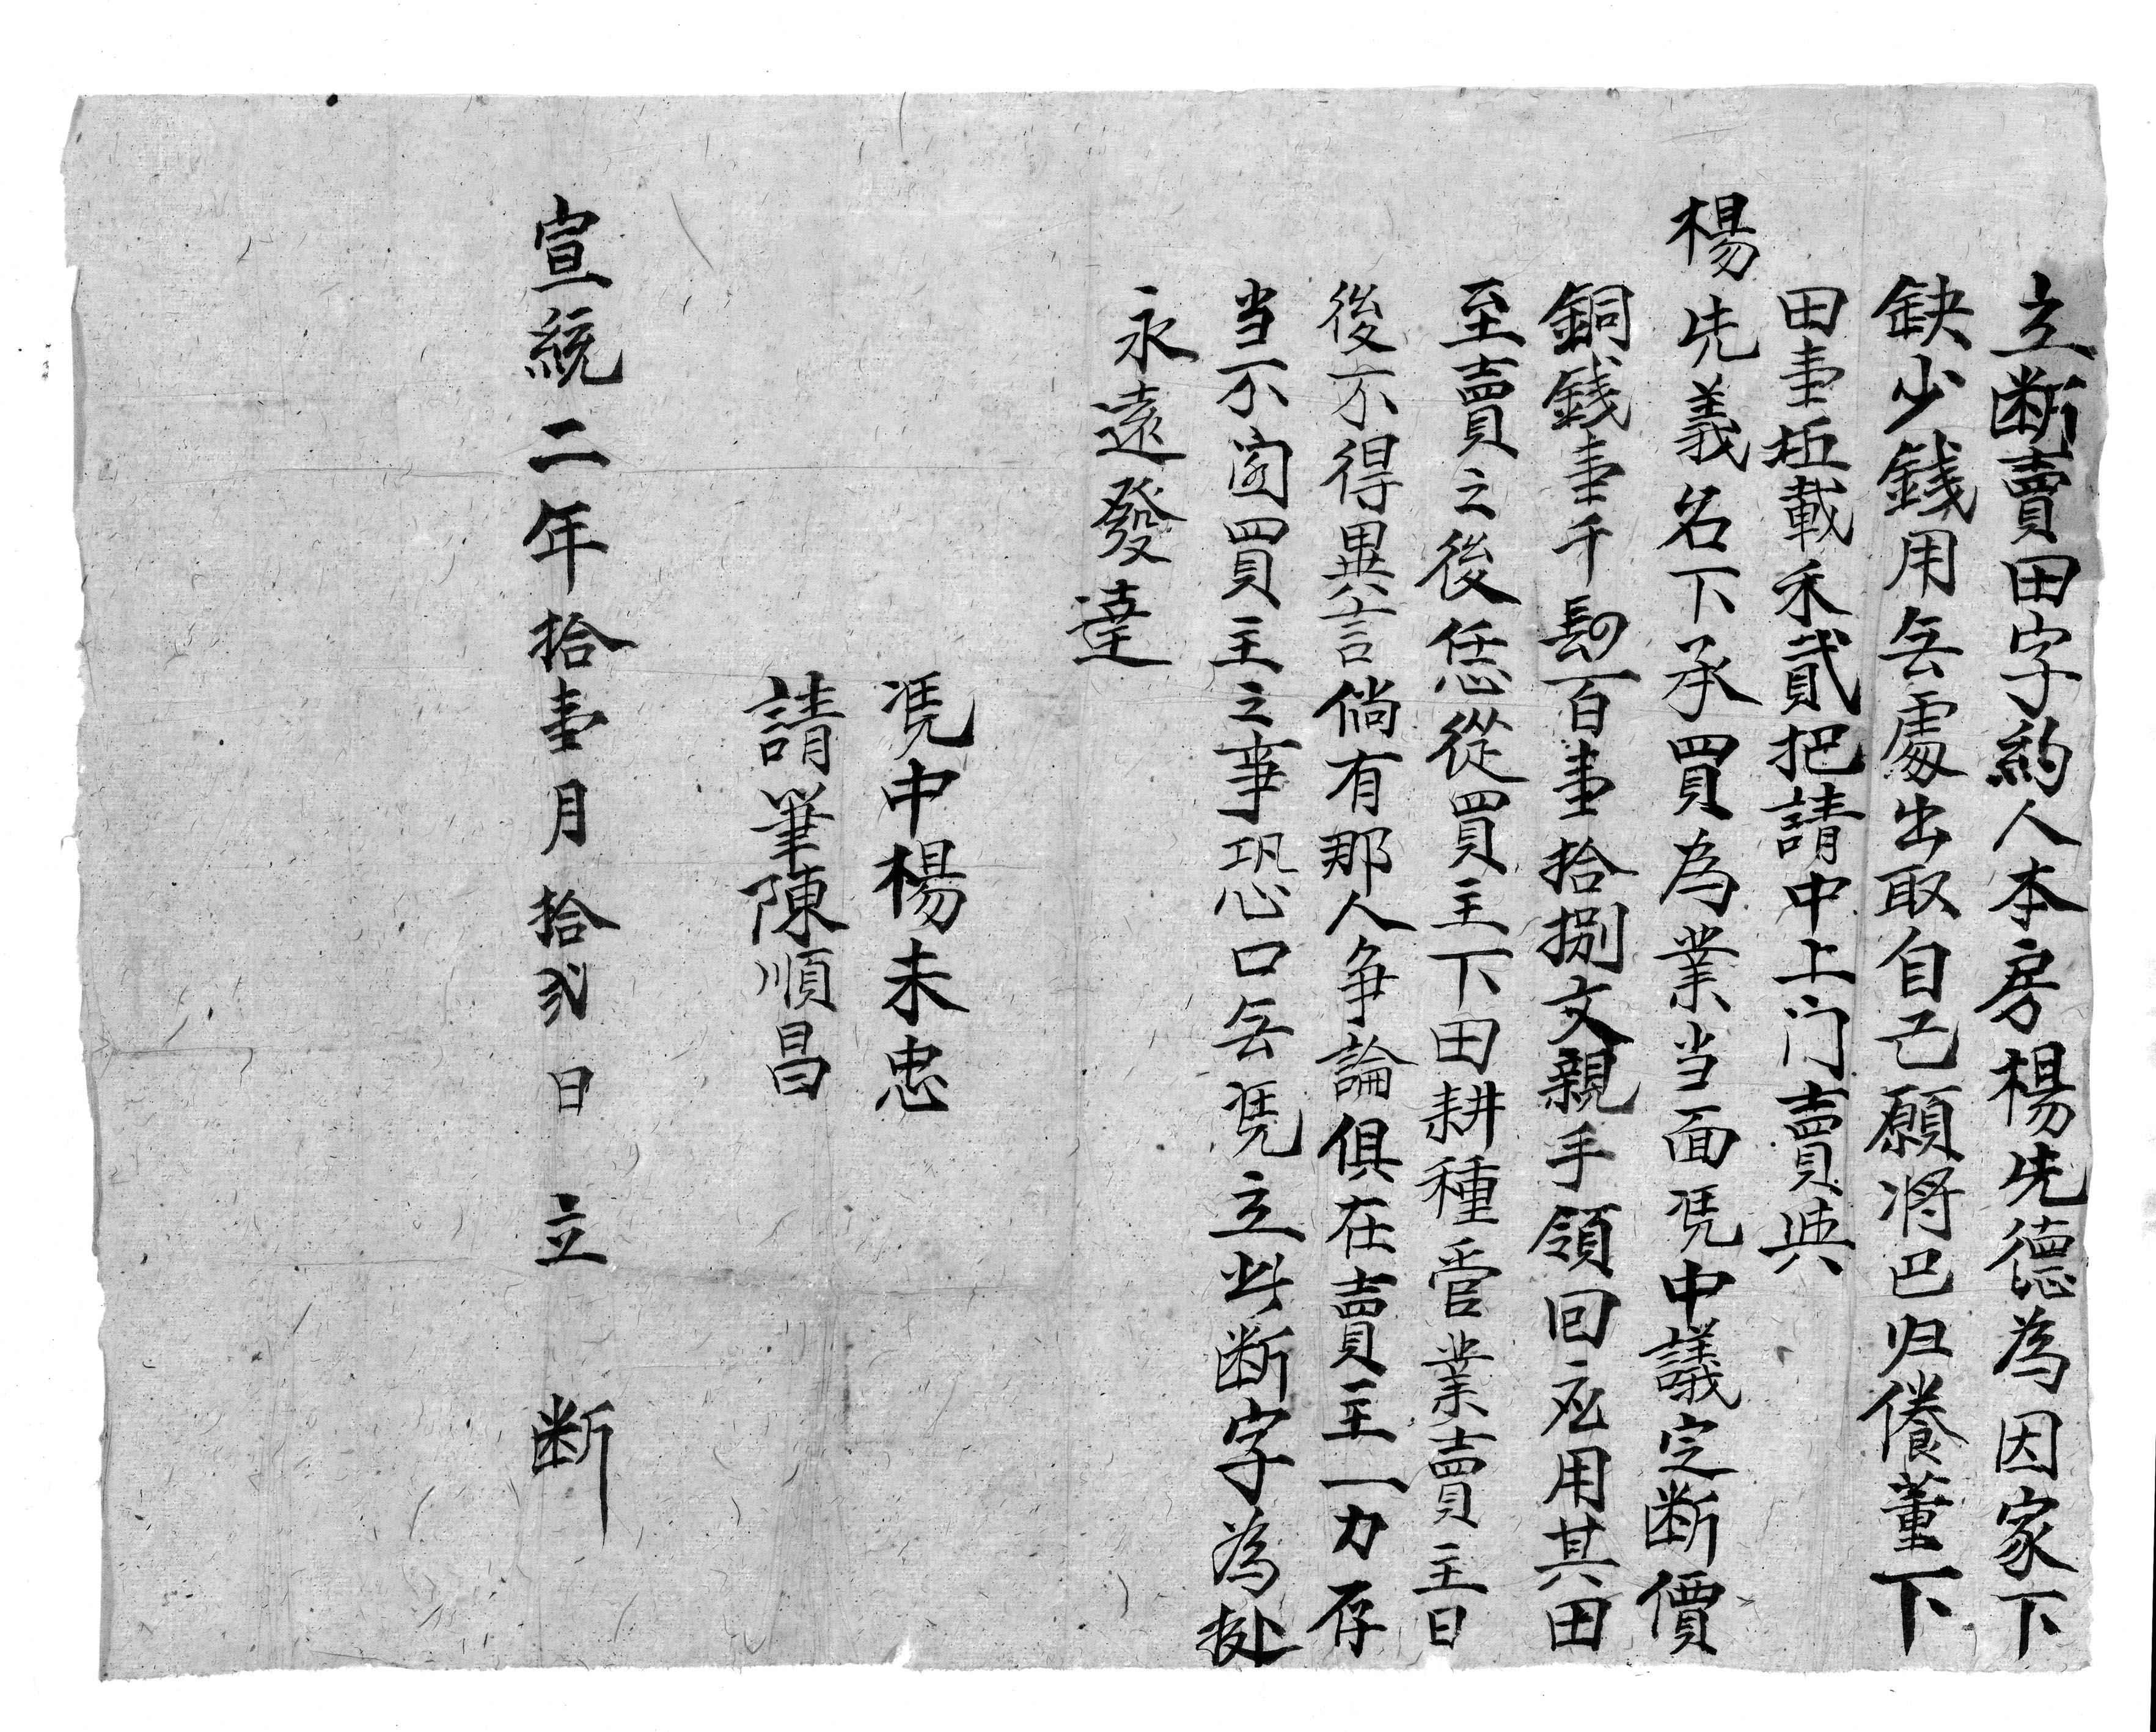 立断賣田字約人本房楊先德為因家下
缺少錢用無處出取自己願将巴归僙董下
田壹坵載禾貳把請中上门賣與
楊先義名下承買為業当面凭中議定断價
銅錢壹千百壹拾捌文親手領回应用其田
至賣之後恁從買主下田耕種管業賣主日
後不得異言倘有那人争論俱在賣主一力存
当不関買主之事恐口無凭立此断字為處
永遠發達
凭中楊未忠
請筆陳順昌
宣統二年拾壹月拾貳日立断